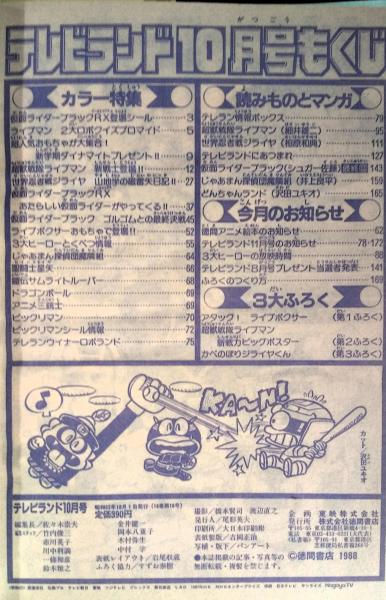 テレビランド10月号もくじ
カラー特集
仮面ライダーブラックRX登場シール 3
ライブマン 2大ロボクイズブロマイド 5
超人気おもちゃが大集合!
新学期ダイナマイトプレゼント!! 9
超獣戦隊ライブマン 新戦士登場!! 12
世界忍者戦ジライヤ 山地学の磁雷矢日記!! 27
仮面ライダーブラックRX
あたらしい仮面ライダーがやってくる!! 37
仮面ライダーブラック ゴルゴムとの最終決戦 45
ライブボクサーおもちゃで登場!! 52
3大ヒーローとくべつ情報 55
じゃあまん探偵団魔隣組 64
聖闘士星矢 66
鎧伝サムライトルーパー 68
ドラゴンボール 69
アニメ三銃士 69
ビックリマン 70
ビックリマンシール情報 72
テレランウイナーロボランド 75
読みものとマンガ
テレラン情報ボックス 79
超獣戦隊ライブマン(細井雄二) 95
世界忍者戦ジライヤ(相原和典) 111
テレビランドにあつまれ 127
仮面ライダーブラック(シュガー佐藤)最終回 143
じゃあまん探偵団魔隣組(井上良平) 159
どんちゃんランド(沢田ユキオ) 165
今月のお知らせ
徳間アニメ絵本のお知らせ 62
テレビランド11月号のお知らせ 78・172
3大ヒーローの放映時間 88
テレビランド8月号プレゼント当選者発表 141
ふろくのつくり方 169
3大ふろく
アタック! ライブボクサー (第1ふろく)
超獣戦隊ライブマン
(第2ふろく)
かべのぼりジライヤくん (第3ふろく)
KA~N!
カット/沢田ユキオ
テレビランド10月号
定価390円
編集長/佐々木崇夫
竹内俊二
川中利満
金井健一
岡本八重子
中村 学
表紙レイアウト/岩尾収蔵
ふろく協力/すずね泰樹
撮影/橋本賢司 渡辺直之
発行人/尾形英夫
印刷所/大日本印刷㈱
写植・版下/バンアート
●本誌記事・写真等の
無断転載・複製を禁じます。
企画 東映株式会社
発行所 株式会社徳間書店
©徳間書店 1988